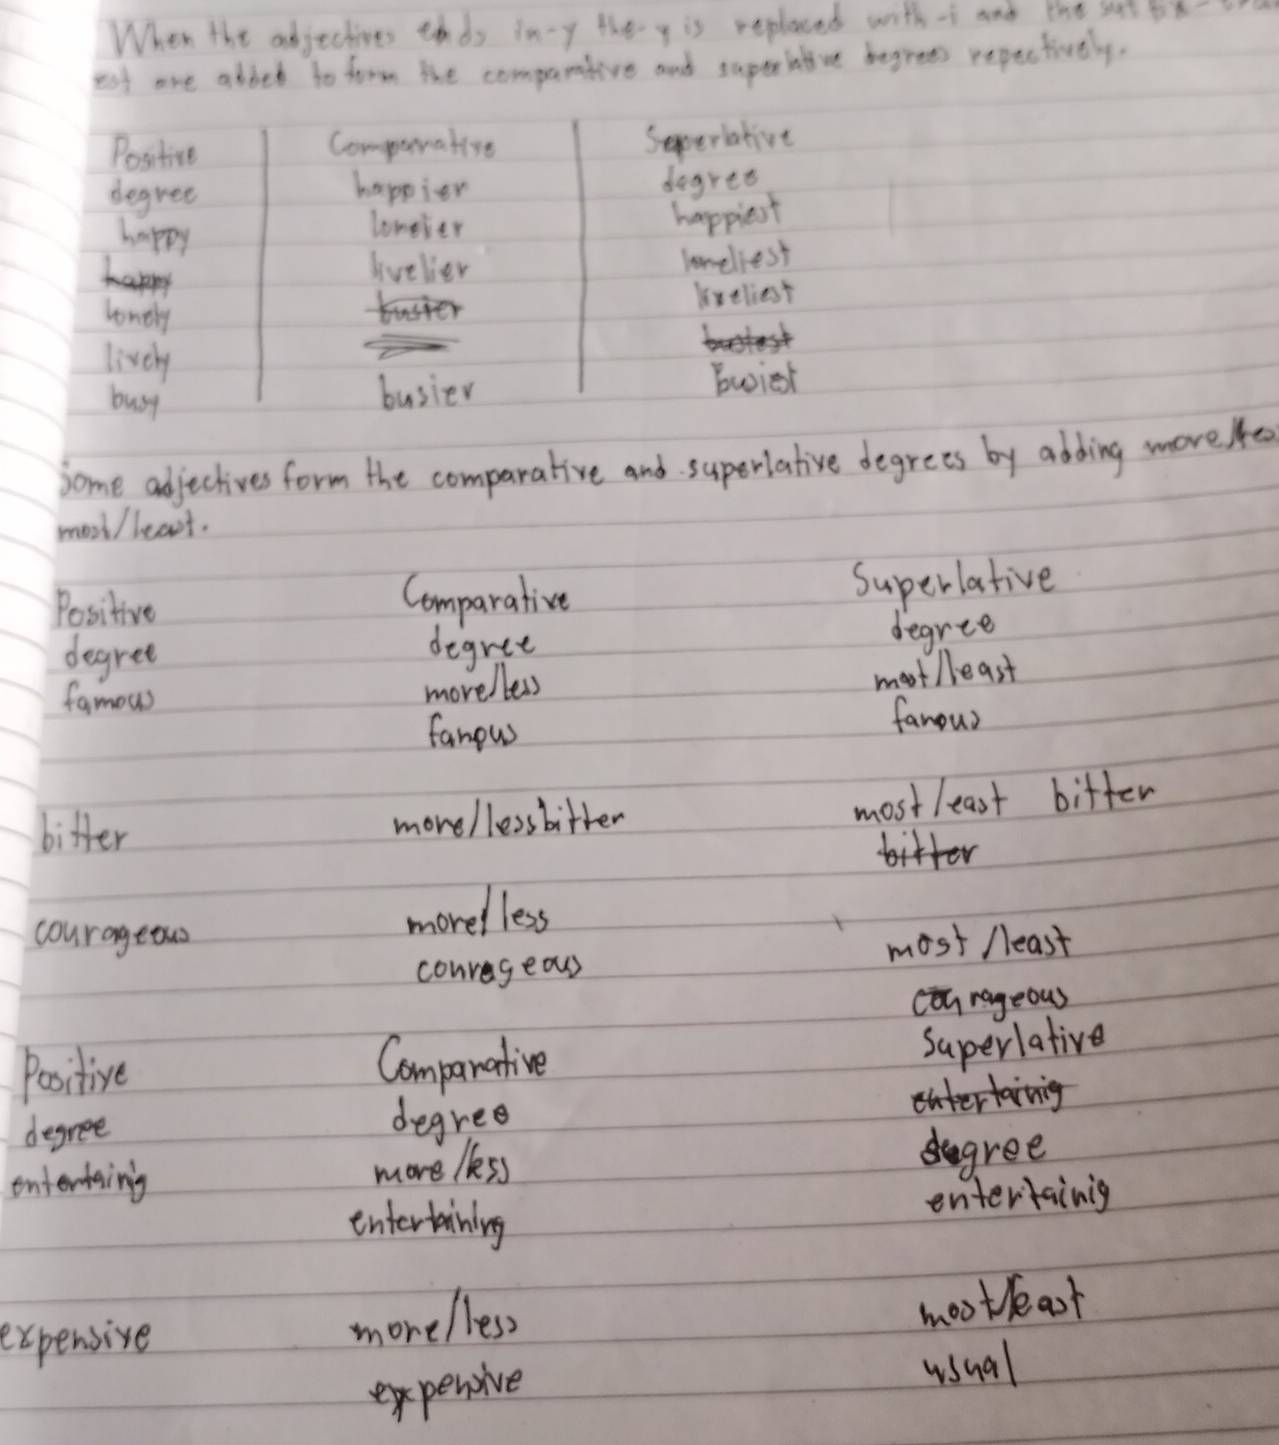 When the adjectives ends in-y the-y is replaced with -i and the
est are added to form the comparative and superlative degrees repectively.
Positive Comparative Seperlative
degree happier degree
happy lonelier happiest
happy livelier loneliest
lonely buster liveliest
lively
busy busier Busiest
Some adjectives form the comparative and superlative degrees by adding more/less
most/least.
Positive Comparative Superlative
degree degree degree
famous more/less most/least
famous famous
bitter more/less bitter most/least bitter
bitter
courageous more/less most/least
courageous courageous
Positive Comparative Superlative
entertainig
degree degree degree
entertainig more/less entertainig
entertaining
expensive more/less most/least
expensive usual